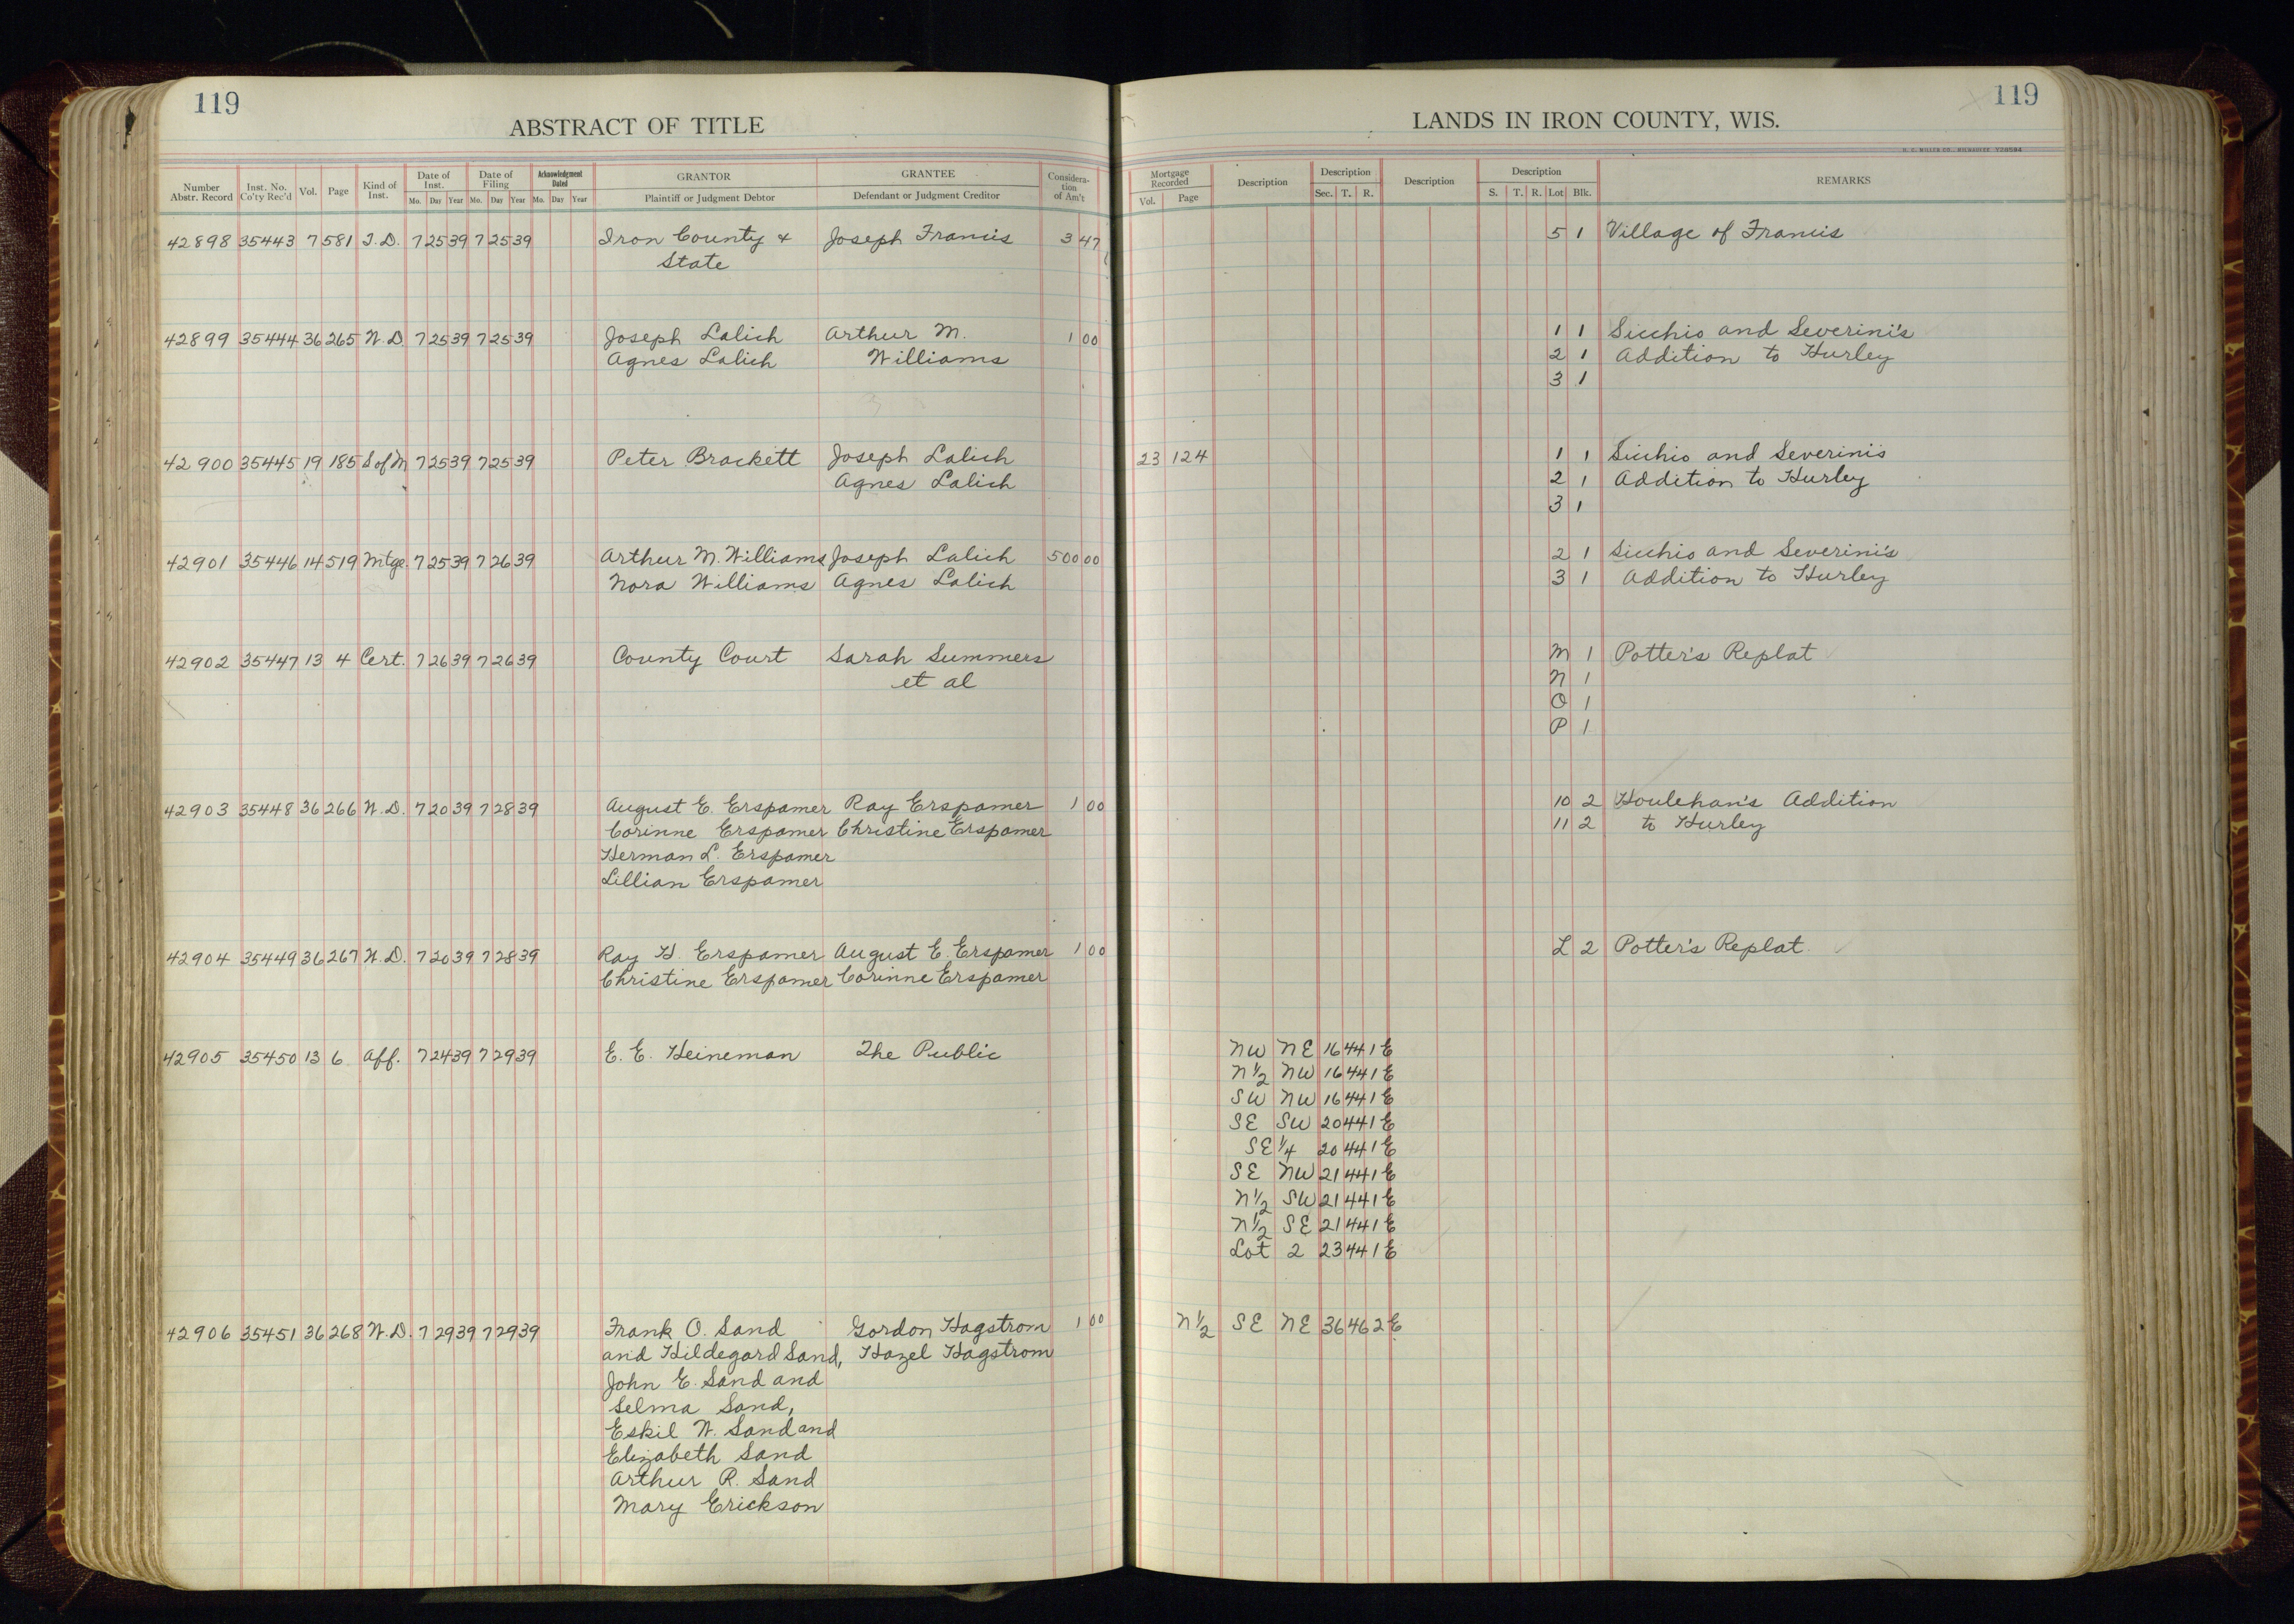 119
ABSTRACT OF TITLE
Number Abstr. Record Inst. No. Co'ty Rec'd Vol. Page Kind of Inst. Date of Inst. Mo. Day Year Date of Filing Mo. Day Year Acknowledgment Dated Mo. Day Year GRANTOR Plaintiff or Judgment Debtor GRANTEE Defendant or Judgment Creditor Considera-tion of Am't
42898 35443 7 581 T.D. 7 25 39 7 25 39 Iron County & Joseph Francis 3 47
State
42899 35444 36 265 W.D. 7 25 39 7 25 39 Joseph Lalich Arthur M. 1 00
Agnes Lalich Williams
42900 35445 19 185 S of M 7 25 39 7 25 39 Peter Brackett Joseph Lalich
Agnes Lalich
42901 35446 14 519 Mtge. 7 25 39 7 26 39 Arthur M. Williams Joseph Lalich 500 00
Nora Williams Agnes Lalich
42902 35447 13 4 Cert. 7 26 39 7 26 39 County Court Sarah Summers
et al
42903 35448 36 266 W.D. 7 20 39 7 28 39 August E. Erspamer Ray Erspamer 1 00
Corinne Erspamer Christine Erspamer
Herman L. Erspamer
Lillian Erspamer
42904 35449 36 267 W.D. 7 20 39 7 28 39 Ray H. Erspamer August E. Erspamer 1 00
Christine Erspamer Corinne Erspamer
42905 35450 13 6 Aff. 7 24 39 7 29 39 E. E. Heineman The Public
42906 35451 36 268 W.D. 7 29 39 7 29 39 Frank O. Sand Gordon Hagstrom 1 00
and Hildegard Sand, Hazel Hagstrom
John E. Sand and
Selma Sand,
Eskil W. Sand and
Elizabeth Sand
Arthur R. Sand
Mary Erickson
119
LANDS IN IRON COUNTY, WIS.
Mortgage Recorded Vol. Page Description Description Sec. T. R. Description Description S. T. R. Lot Blk. REMARKS
5 1 Village of Francis
1 1 Sicchio and Severini's
2 1 Addition to Hurley
3 1
23 124 1 1 Sicchio and Severini's
2 1 Addition to Hurley
3 1
2 1 Sicchio and Severini's
3 1 Addition to Hurley
M 1 Potter's Replat
N 1
O 1
P 1
10 2 Houlehan's Addition
11 2 to Hurley
L 2 Potter's Replat
NW NE 16 44 1 E
N½ NW 16 44 1 E
SW NW 16 44 1 E
SE SW 20 44 1 E
SE¼ 20 44 1 E
SE NW 21 44 1 E
N½ SW 21 44 1 E
N½ SE 21 44 1 E
Lot 2 23 44 1 E
N½ SE NE 36 46 2 E